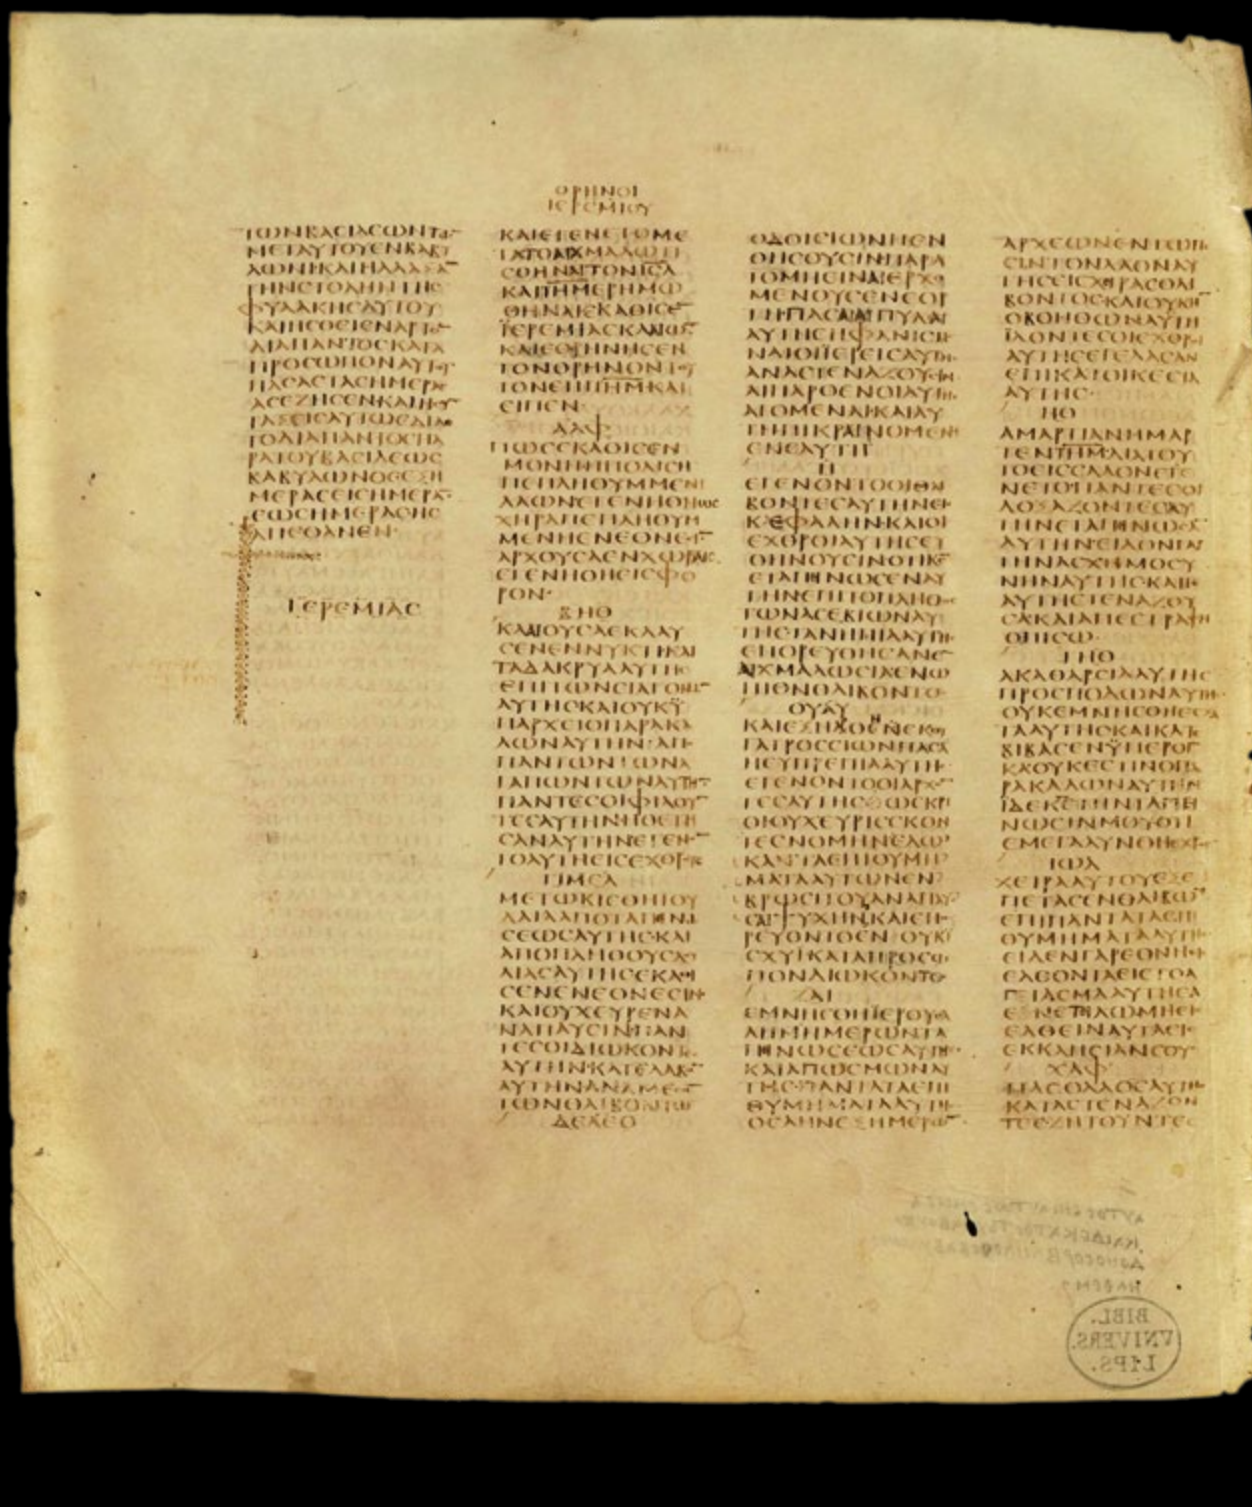 ΙΩΝΒΑϹΙΛΕΩΝΤΩ¯
ΜΕΤΑΥΤΟΥΕΝΒΑΒΥ
ΛΩΝΙΚΑΙΗΛΛΑΞΑ¯
ΤΗΝϹΤΟΛΗΝΤΗϹ
ΦΥΛΑΚΗϹΑΥΤΟΥ
ΚΑΙΗϹΘΙΕΝΑΡΤΟ¯
ΔΙΑΠΑΝΤΟϹΚΑΤΑ
ΠΡΟϹΩΠΟΝΑΥΤΟΥ
ΠΑϹΑϹΤΑϹΗΜΕΡΑϹ
ΑϹΕΖΗϹΕΝΚΑΙΗϹΥ¯
ΤΑΞΕΙϹΑΥΤΩΕΔΙΔΟ
ΤΟΔΙΑΠΑΝΤΟϹΠΑ
ΡΑΤΟΥΒΑϹΙΛΕΩϹ
ΒΑΒΥΛΩΝΟϹΕΞΗ
ΜΕΡΑϹΕΙϹΗΜΕΡΑ¯
ΕΩϹΗΜΕΡΑϹΗϹ
ΑΠΕΘΑΝΕΝ
ΙΕΡΕΜΙΑϹ
ΘΡΗΝΟΙ
ΙΕΡΕΜΙΟΥ
ΚΑΙΕΓΕΝΕΤΟΜΕ
ΤΑΤΟΑΙΧΜΑΛΩΤΙ
ϹΘΗΝΑΙΤΟΝΙϹΛ
ΚΑΙΙΗΜΕΡΗΜΩ
ΘΗΝΑΙΕΚΑΘΙϹΕ¯
ΙΕΡΕΜΙΑϹΚΛΑΙΩ¯
ΚΑΙΕΘΡΗΝΗϹΕΝ
ΤΟΝΘΡΗΝΟΝΤΟΥ
ΤΟΝΕΠΙΙΗΜΚΑΙ
ΕΙΠΕΝ
ΑΛΦ
ΠΩϹΕΚΑΘΙϹΕΝ
ΜΟΝΗΗΠΟΛΙϹΗ
ΠΕΠΛΗΘΥΜΜΕΝΗ
ΛΑΩΝΕΓΕΝΗΘΗΩϹ
ΧΗΡΑΠΕΠΛΗΘΥΜ
ΜΕΝΗΕΝΕΘΝΕϹΙ¯
ΑΡΧΟΥϹΑΕΝΧΩΡΑΙϹ
ΕΓΕΝΗΘΗΕΙϹΦΟ
ΡΟΝ
ΒΗΘ
ΚΛΑΙΟΥϹΑΕΚΛΑΥ
ϹΕΝΕΝΝΥΚΤΙΚΑΙ
ΤΑΔΑΚΡΥΑΑΥΤΗϹ
ΕΠΙΤΩΝϹΙΑΓΟΝΩ¯
ΑΥΤΗϹΚΑΙΟΥΚΫ
ΠΑΡΧΕΙΟΠΑΡΑΚΑ
ΛΩΝΑΥΤΗΝΑΠ
ΠΑΝΤΩΝΤΩΝΑ
ΓΑΠΩΝΤΩΝΑΥΤΗ¯
ΠΑΝΤΕϹΟΙΦΙΛΟΥ¯
ΤΕϹΑΥΤΗΝΗΘΕΤΗ
ϹΑΝΑΥΤΗΝΕΓΕΝ¯
ΤΟΑΥΤΗϹΕΙϹΕΧΘΡΟΥϹ
ΓΙΜΕΛ
ΜΕΤΩΚΙϹΘΗΙΟΥ
ΔΑΙΑΑΠΟΤΑΠΙΝΩ
ϹΕΩϹΑΥΤΗϹΚΑΙ
ΑΠΟΠΛΗΘΟΥϹΔΟΥ
ΛΙΑϹΑΥΤΗϹΕΚΑΘΙ
ϹΕΝΕΝΕΘΝΕϹΙΝ
ΚΑΙΟΥΧΕΥΡΕΝΑ
ΝΑΠΑΥϹΙΝΠΑΝ
ΤΕϹΟΙΔΙΩΚΟΝΤΕϹ
ΑΥΤΗΝΚΑΤΕΛΑΒΟ¯
ΑΥΤΗΝΑΝΑΜΕϹΟ¯
ΤΩΝΘΛΙΒΟΝΤΩ¯
ΔΕΛΕΘ
ΟΔΟΙϹΙΩΝΠΕΝ
ΘΗϹΟΥϹΙΝΠΑΡΑ
ΤΟΜΗΕΙΝΑΙΕΡΧΟ
ΜΕΝΟΥϹΕΝΕΟΡ
ΤΗΠΑϹΑΙΑΙΠΥΛΑΙ
ΑΥΤΗϹΗΦΑΝΙϹΜΕ
ΝΑΙΟΙΪΕΡΕΙϹΑΥΤΗϹ
ΑΝΑϹΤΕΝΑΖΟΥϹΙΝ
ΑΙΠΑΡΘΕΝΟΙΑΥΤΗϹ
ΑΓΟΜΕΝΑΙΚΑΙΑΥ
ΤΗΠΙΚΡΑΙΝΟΜΕΝΗ
ΕΝΕΑΥΤΗ
Η
ΕΓΕΝΟΝΤΟΟΙΘΛΙ
ΒΟΝΤΕϹΑΥΤΗΝΕΙϹ
ΚΕΦΑΛΗΝΚΑΙΟΙ
ΕΧΘΡΟΙΑΥΤΗϹΕΥ
ΘΗΝΟΥϹΙΝΟΤΙΚϹ
ΕΤΑΠΙΝΩϹΕΝΑΥ
ΤΗΝΕΠΙΤΟΠΛΗΘΟϹ
ΤΩΝΑϹΕΒΙΩΝΑΥ
ΤΗϹΤΑΝΗΠΙΑΑΥΤΗϹ
ΕΠΟΡΕΥΘΗϹΑΝΕ¯
ΑΙΧΜΑΛΩϹΙΑΕΝΩ
ΠΙΟΝΘΛΙΒΟΝΤΟϹ
ΟΥΑΥ
ΚΑΙΕΞΗΛΘΕΝΕΚΘΥ
ΓΑΤΡΟϹϹΙΩΝΠΑϹΑ
ΗΕΥΠΡΕΠΙΑΑΥΤΗϹ
ΕΓΕΝΟΝΤΟΟΙΑΡΧΟ¯
ΤΕϹΑΥΤΗϹΩϹΚΡΙ
ΟΙΟΥΧΕΥΡΙϹΚΟΝ
ΤΕϹΝΟΜΗΝΕΔΙΩ
ΚΑΝΤΑΕΠΙΘΥΜΗ
ΜΑΤΑΑΥΤΩΝΕΝ
ΒΡΩϹΙΤΟΥΑΝΑΠΑΥ
ϹΑΙΨΥΧΗΝΚΑΙΕΠΟ
ΡΕΥΟΝΤΟΕΝΟΥΚΙ
ϹΧΥΪΚΑΤΑΠΡΟϹΩ
ΠΟΝΔΙΩΚΟΝΤΟϹ
ΖΑΙ
ΕΜΝΗϹΘΗΙΕΡΟΥϹΑ
ΛΗΜΗΜΕΡΩΝΤΑ
ΠΙΝΩϹΕΩϹΑΥΤΗϹ
ΚΑΙΑΠΩϹΜΩΝΑΥ
ΤΗϹΠΑΝΤΑΤΑΕΠΙ
ΘΥΜΗΜΑΤΑΑΥΤΗϹ
ΟϹΑΗΝΕΞΗΜΕΡΩ¯
ΑΡΧΕΩΝΕΝΤΩΠΕ
ϹΙΝΤΟΝΛΑΟΝΑΥ
ΤΗϹΕΙϹΧΙΡΑϹΘΛΙ
ΒΟΝΤΟϹΚΑΙΟΥΚΗ¯
ΟΒΟΗΘΩΝΑΥΤΗ
ΪΔΟΝΤΕϹΟΙΕΧΘΡΟΙ
ΑΥΤΗϹΕΓΕΛΑϹΑΝ
ΕΠΙΚΑΤΟΙΚΕϹΙΑ
ΑΥΤΗϹ
ΗΘ
ΑΜΑΡΤΙΑΝΗΜΑΡ
ΤΕΝΙΗΜΔΙΑΤΟΥ
ΤΟΕΙϹϹΑΛΟΝΕΓΕ
ΝΕΤΟΠΑΝΤΕϹΟΙ
ΔΟΞΑΖΟΝΤΕϹΑΥ
ΤΗΝΕΤΑΠΙΝΩϹΑ¯
ΑΥΤΗΝΕΙΔΟΝΓΑΡ
ΤΗΝΑϹΧΗΜΟϹΥ
ΝΗΝΑΥΤΗϹΚΑΙΓΕ
ΑΥΤΗϹΤΕΝΑΖΟΥ
ϹΑΚΑΙΑΠΕϹΤΡΑΦΗ
ΟΠΙϹΩ
ΤΗΘ
ΑΚΑΘΑΡϹΙΑΑΥΤΗϹ
ΠΡΟϹΠΟΔΩΝΑΥΤΗϹ
ΟΥΚΕΜΝΗϹΘΗΕϹΧΑ
ΤΑΑΥΤΗϹΚΑΙΚΑΤΕ
ΒΙΒΑϹΕΝΫΠΕΡΟΓ
ΚΑΟΥΚΕϹΤΙΝΟΠΑ
ΡΑΚΑΛΩΝΑΥΤΗΝ
ΪΔΕΚΕΤΗΝΤΑΠΙ
ΝΩϹΙΝΜΟΥΟΤΙ
ΕΜΕΓΑΛΥΝΘΗΕΧΘΡΟϹ
ΙΩΔ
ΧΕΙΡΑΑΥΤΟΥΕΞΕ
ΠΕΤΑϹΕΝΘΛΙΒΩ¯
ΕΠΙΠΑΝΤΑΤΑΕΠΙ
ΘΥΜΗΜΑΤΑΑΥΤΗϹ
ΕΙΔΕΝΓΑΡΕΘΝΗΕΙϹ
ΕΛΘΟΝΤΑΕΙϹΤΟΑ
ΓΙΑϹΜΑΑΥΤΗϹΑ
ΕΝΕΤΙΛΩΜΗΕΙϹ
ΕΛΘΕΙΝΑΥΤΑΕΙϹ
ΕΚΚΛΗϹΙΑΝϹΟΥ
ΧΑΦ
ΠΑϹΟΛΑΟϹΑΥΤΗϹ
ΚΑΤΑϹΤΕΝΑΖΟΝ
ΤΕϹΖΗΤΟΥΝΤΕϹ
BIBL.
VNIVERS.
LIPS.